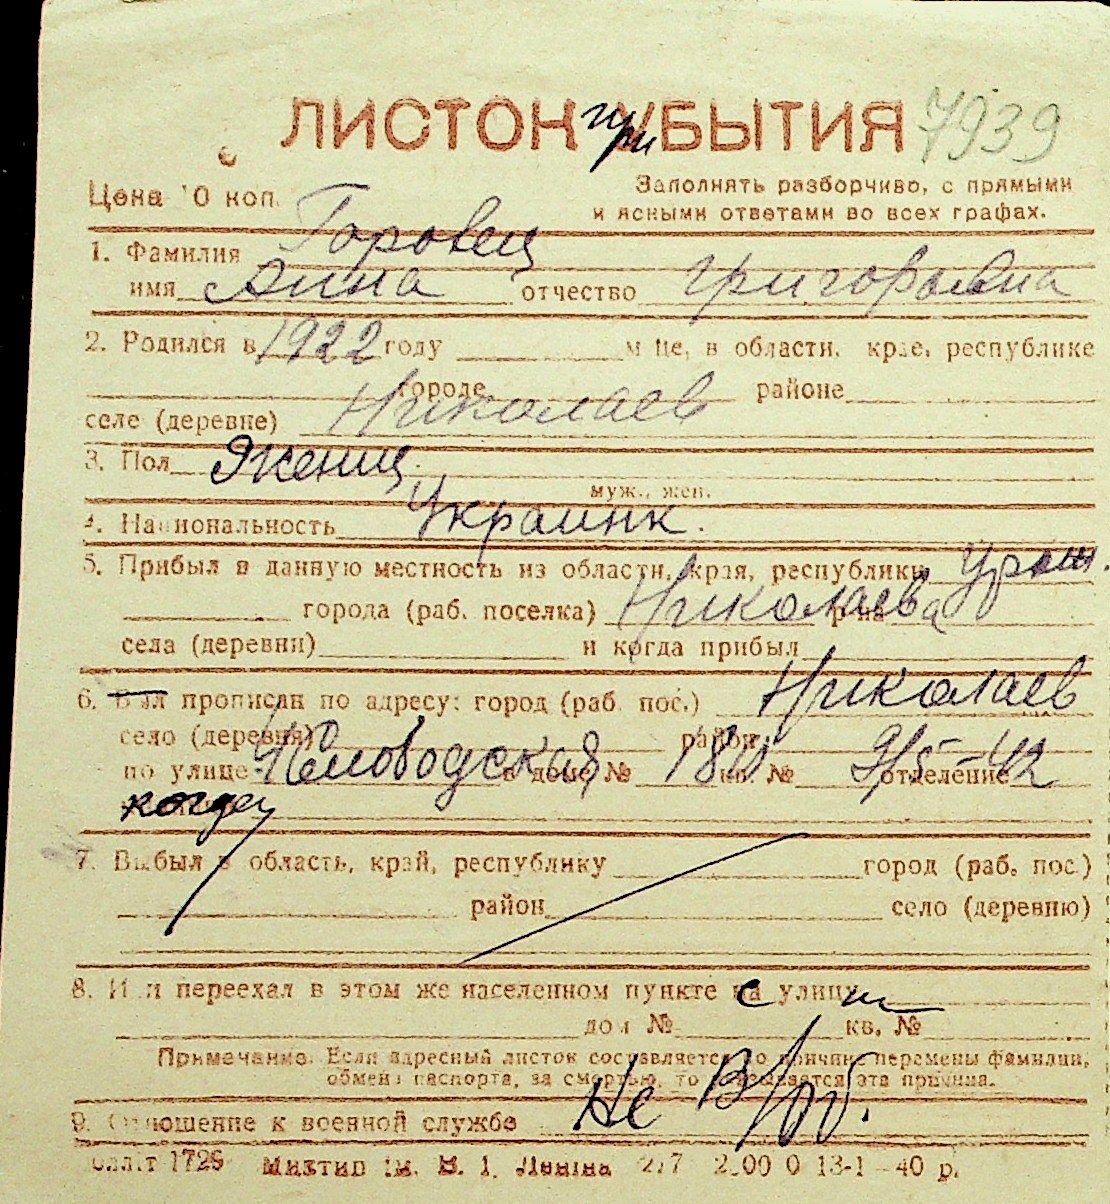 ЛИСТОК при УБЫТИЯ 7939
Цена 10 коп.
Заполнять разборчиво, с прямыми
и ясными ответами во всех графах.
1. Фамилия Горовец
имя Анна отчество Григорьевна
2. Родился в 1922 году м-це, в области, крае, республике
городе районе
селе (деревне) Николаев
3. Пол Женщ.
муж., жен.
4. Национальность Украинк.
5. Прибыл в данную местность из области, края, республики
города (раб. поселка) Николаева р-на
села (деревни) и когда прибыл
6. Был прописан по адресу: город (раб. пос.) Николаев
село (деревня) район
по улице в доме № 18 кв. № отделение
когда
7. Выбыл в область, край, республику город (раб. пос.)
район село (деревню)
8. Или переехал в этом же населенном пункте с на улицу
дом № кв. №
Примечание. Если адресный листок составляется по причине перемены фамилии,
обмена паспорта, за смертью, то указывается эта причина.
9. Отношение к военной службе Не В/об.
1729 им. В. И. Ленина 40 р.